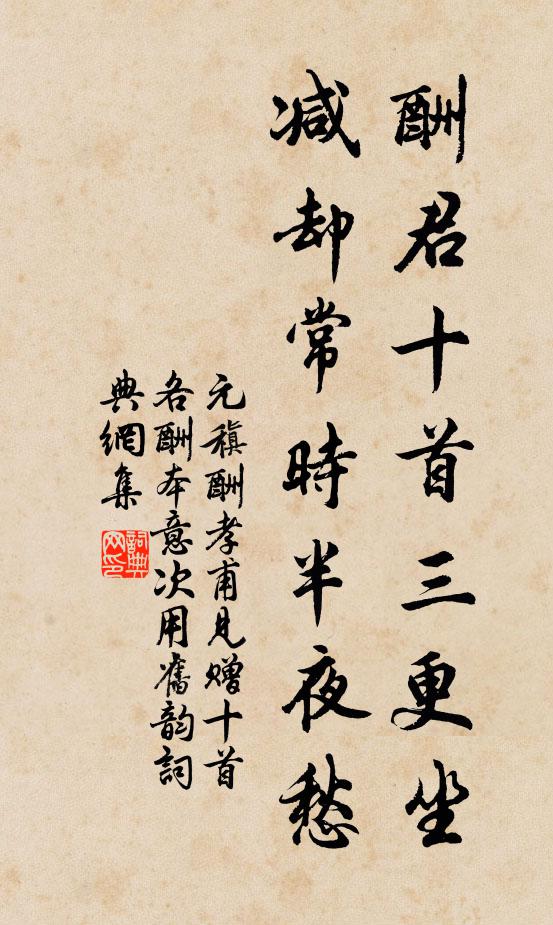 酬君十首三更坐
減却常時半夜愁
元稹酬孝甫見贈十首
各酬本意次用舊韵詞
典網集
詞典
网印